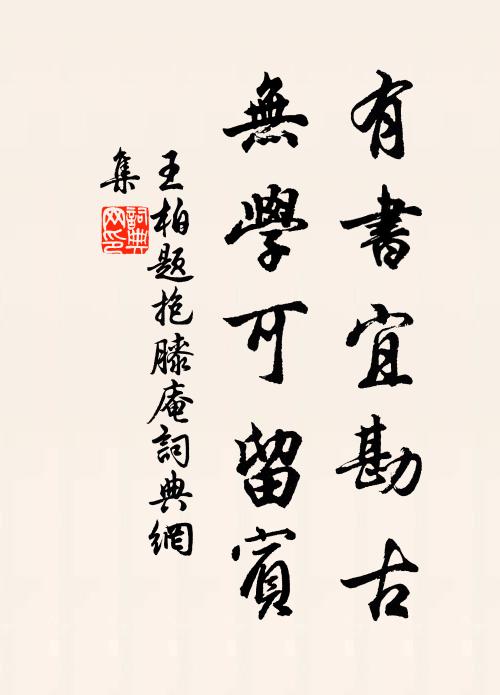 有書宜勘古
無學可留賓
王柏题抱膝庵詞典網
集
詞典
网印